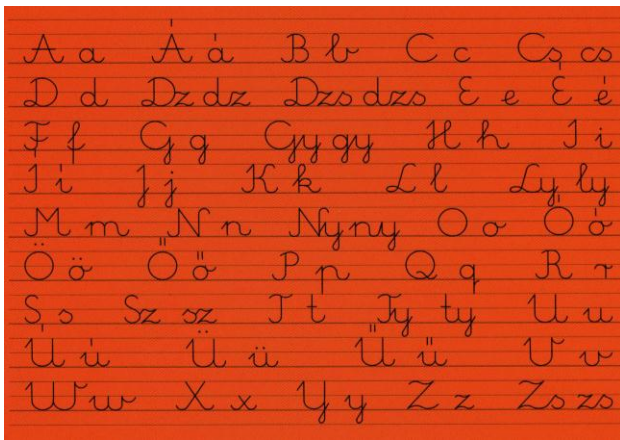 A a Á á B b C c Cs cs
D d Dz dz Dzs dzs E e É é
F f G g Gy gy H h I i
Í í J j K k L l Ly ly
M m N n Ny ny O o Ó ó
Ö ö Ő ő P p Q q R r
S s Sz sz T t Ty ty U u
Ú ú Ü ü Ű ű V v
W w X x Y y Z z Zs zs